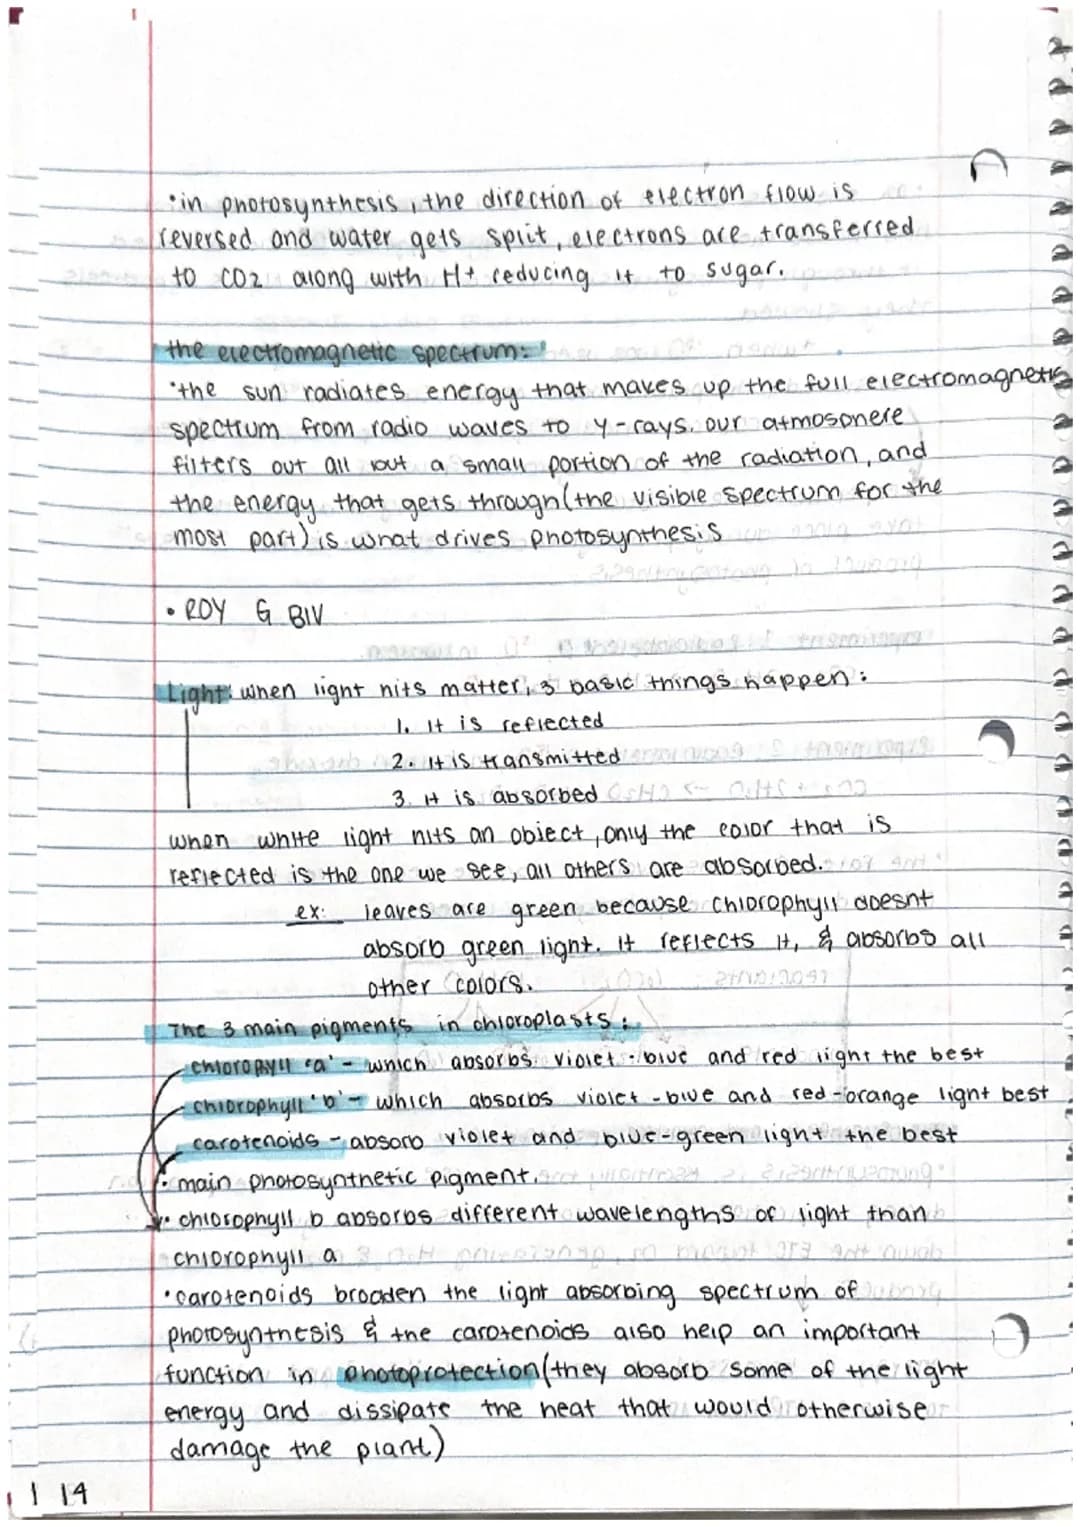 •in photosynthesis, the direction of electron flow is
reversed and water gets split, electrons are transferred
to CO2 along with H+ reducing it to sugar.
the electromagnetic spectrum:
•the sun radiates energy that makes up the full electromagnetic
spectrum from radio waves to γ-rays. our atmosphere
filters out all but a small portion of the radiation, and
the energy that gets through (the visible spectrum for the
most part) is what drives photosynthesis
• ROY G BIV
Light: when light hits matter, 3 basic things happen:
1. It is reflected
2. It is transmitted
3. It is absorbed
when white light hits an object, only the color that is
reflected is the one we see, all others are absorbed.
ex: leaves are green because chlorophyll doesnt
absorb green light. It reflects it, & absorbs all
other colors.
The 3 main pigments in chloroplasts:
chlorophyll 'a' - which absorbs violet-blue and red light the best
chlorophyll 'b' - which absorbs violet-blue and red-orange light best
carotenoids - absorb violet and blue-green light the best
• main photosynthetic pigment.
• chlorophyll b absorbs different wavelengths of light than
chlorophyll a
•carotenoids broaden the light absorbing spectrum of
photosynthesis & the carotenoids also help an important
function in photoprotection (they absorb some of the light
energy and dissipate the heat that would otherwise
damage the plant)
1 14